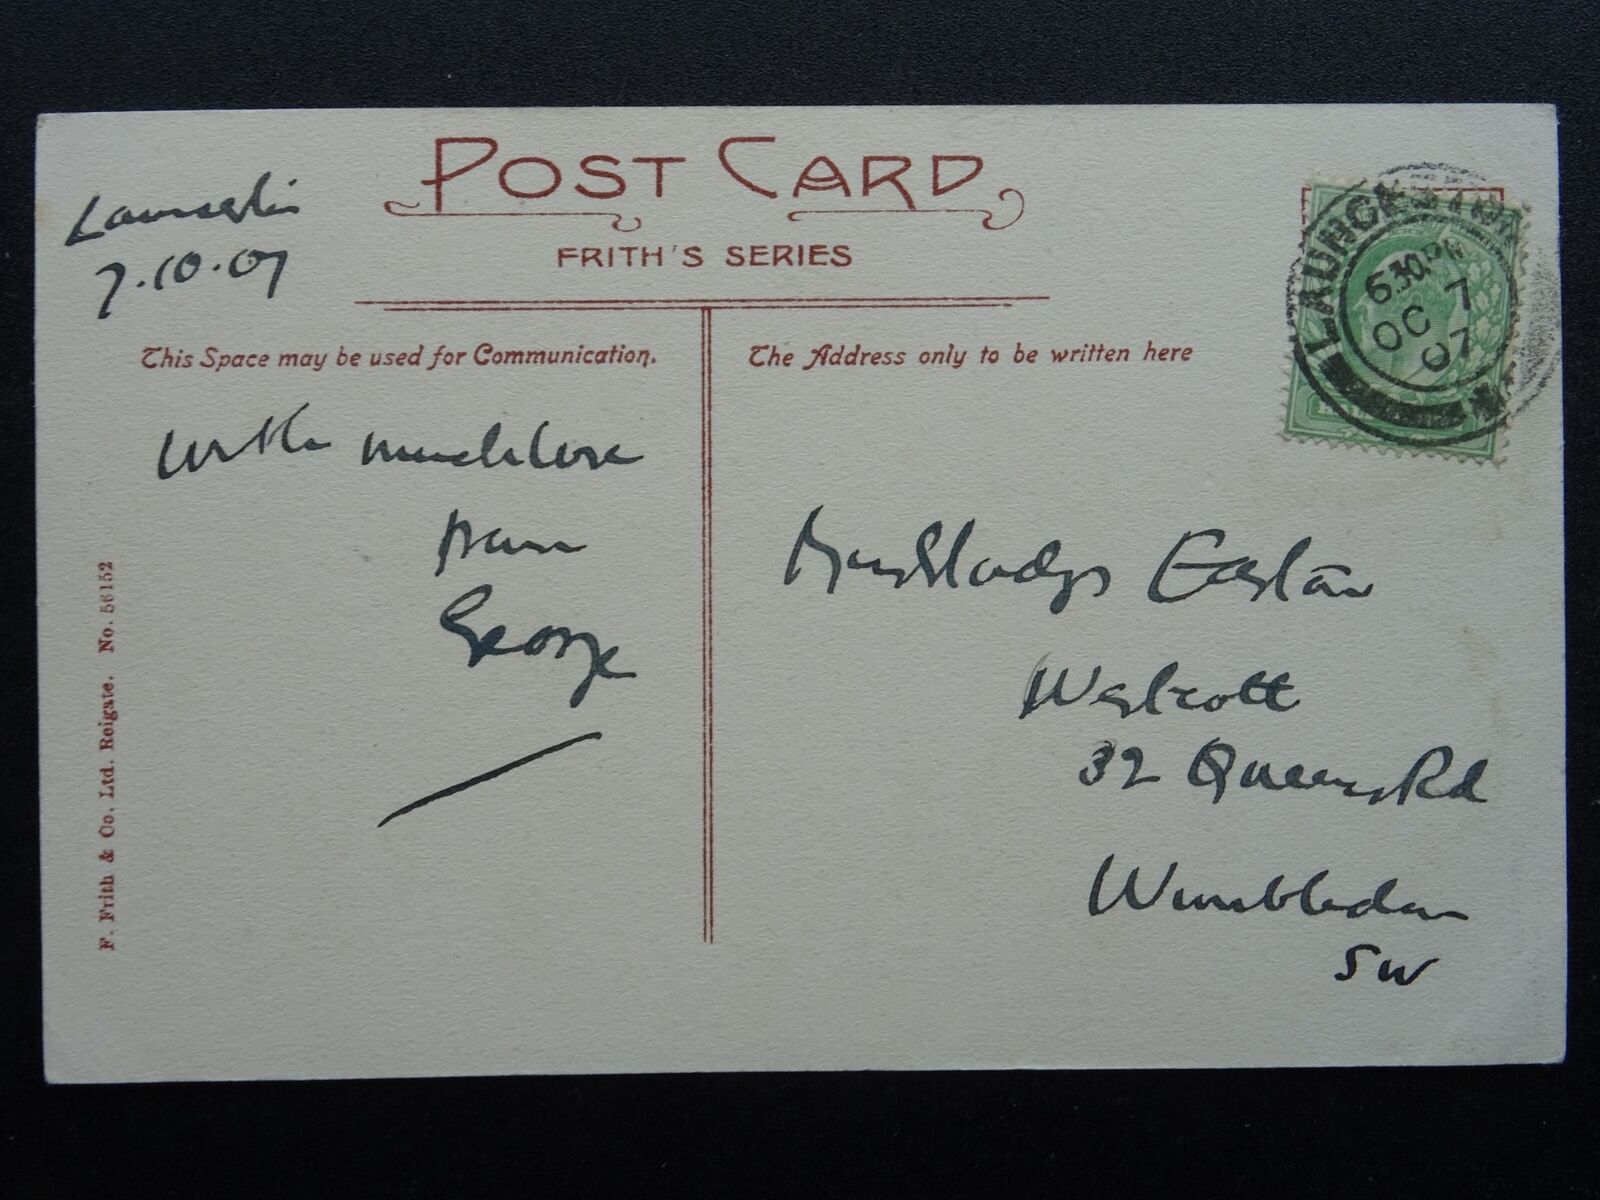 POST CARD
FRITH'S SERIES
7.10.07
This Space may be used for Communication.
The Address only to be written here
LAUNCESTON
6.30 PM
OC 7
07
With much love
from
George
Miss Gladys Easton
Westcott
32 Queens Rd
Wimbledon
SW
F. Frith & Co. Ltd. Reigate. No. 56152